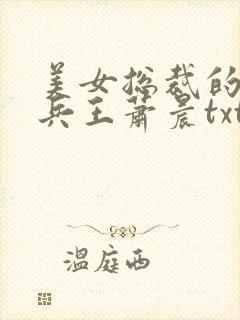 美女总裁的
兵王萧晨txt
温庭西